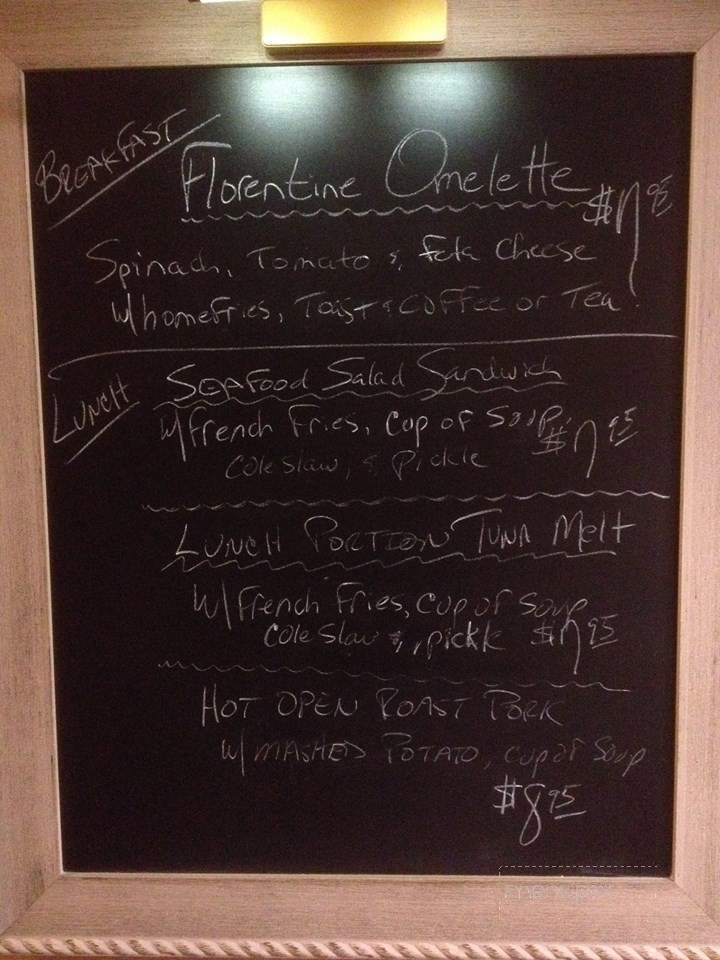 BREAKFAST
Florentine Omelette
$7.95
Spinach, Tomato & feta cheese
w/homefries, Toast & coffee or Tea.
LUNCH
SEAFood Salad Sandwich
w/French Fries, cup of Soup,
$7.95
cole slaw, & pickle
LUNCH PORTION TUNA Melt
w/French Fries, cup of Soup
cole slaw &, pickle $7.95
HOT OPEN ROAST PORK
w/ MASHED POTATO, cup of Soup
$8.95